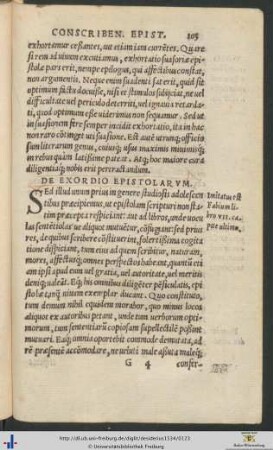 CONSCRIBEN. EPIST. 105
exhortamur cessantes, uæ etiam iam currētes. Quare
si rem ad uiuum excutimus, exhortatio suasoriæ epi-
stolæ pars erit, nempe epilogus, qui affectibus constat,
non argumentis. Neque enim suadenti sat erit, quid sit
optimum factu docuisse, nisi et stimulos subijciat, ne uel
difficultate uel periculo deterriti, uel ignauia retarda-
ti, quod optimum esse uiderimus non sequamur. Sed ut
in suasionem ferè semper incidit exhortatio, ita in hac
non raro cōtingit uti suasione. Est autē utrunq; officiū
sum literarum genus, cuius q; usus maximus minimisq;
in rebus quàm latissime patere. Atq; hoc maiore cura
diligentiaq; nobis erit pertractandum.
DE EXORDIO EPISTOLARVM.
Sed illud unum prius in genere studiosis adolescen
tibus præcipiemus, ut epistolam scripturi non sta-
tim præcepta respiciant: aut ad libros, unde uocu
las sentētiolas ue aliquot mutuētur, cōfugiant: sed prius
res, de quibus scribere cōstituerint, solertissima cogita
tione dispiciant, tum eius ad quem scribitur, naturam,
mores, affectusq; omnes perspectos habeant, quantū eti
am ipsi apud eum uel gratia, uel autoritate, uel meritis
ualeant.
Imitatus est
Fabium li-
bro vii. ca-
pite ultimo.
tum demum nihil eorundem morabor, quo minus locos
aliquos ex autoribus petant, unde tum uerborum opti-
morum, tum sententiarū copiosam supellectilē possint
mutuari. Eaq; omnia oportebit commode demutata, ad
rē præsentē accōmodare, ne ueluti male assuta maleq;
G 4 confer-
http://dl.ub.uni-freiburg.de/diglit/desiderius1534/0123
© Universitätsbibliothek Freiburg